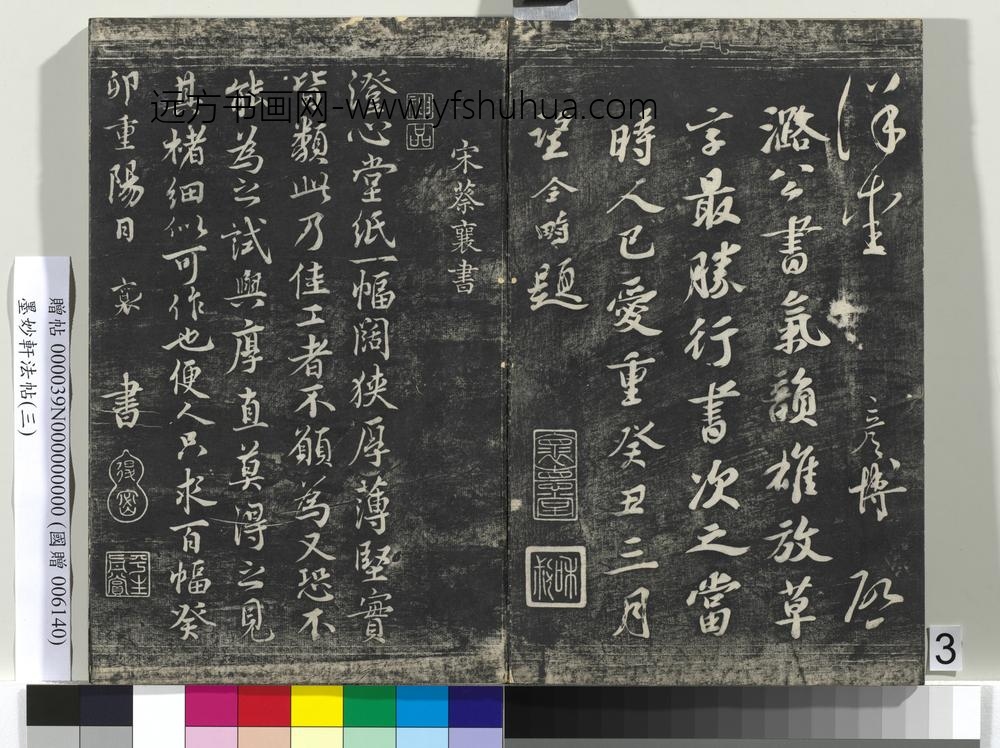 彥博
潞公書氣韻雄放草
字最勝行書次之當
時人已愛重癸丑三月
望 題
宋蔡襄書
澄心堂紙一幅闊狹厚薄堅實
皆類此乃佳工者不願為又恐不
能為之試與厚直莫得之見
其楮細似可作也便人只求百幅癸
卯重陽日 襄 書
远方书画网-www.yfshuhua.com
贈帖 000039N000000000 (國贈 006140)
墨妙軒法帖(三)
3